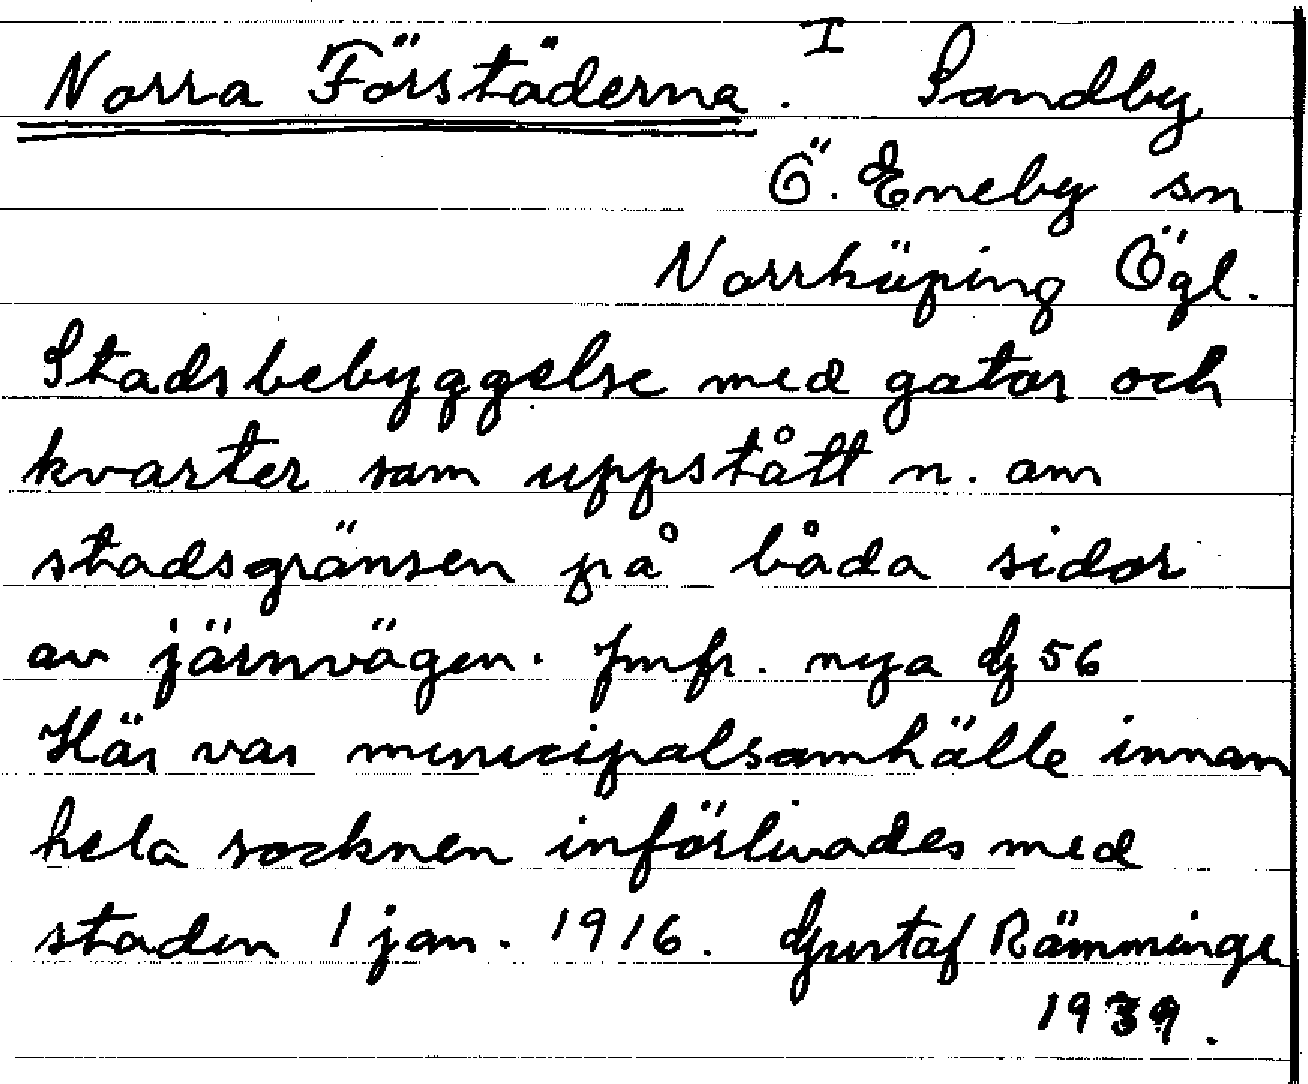 Norra Förstäderna. I Sandby
Ö. Eneby sn
Norrköping Ögl.
Stadsbebyggelse med gator och
kvarter som uppstått n. om
stadsgränsen på båda sidor
av järnvägen. Jmfr. nya G 56
Här var municipalsamhälle innan
hela socknen införlivades med
staden 1 jan. 1916. Gustaf Rämminge
1939.